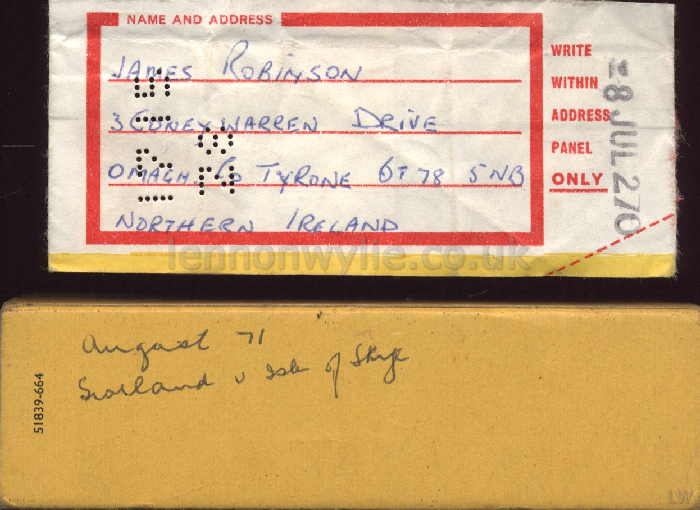 NAME AND ADDRESS
JAMES ROBINSON
3 CONEYWARREN DRIVE
OMAGH. Co TYRONE BT78 5NB
NORTHERN IRELAND
WRITE
WITHIN
ADDRESS
PANEL
ONLY
8 JUL 270
lennonwylie.co.uk
51839-664
August 71
Scotland & Isle of Skye
LW